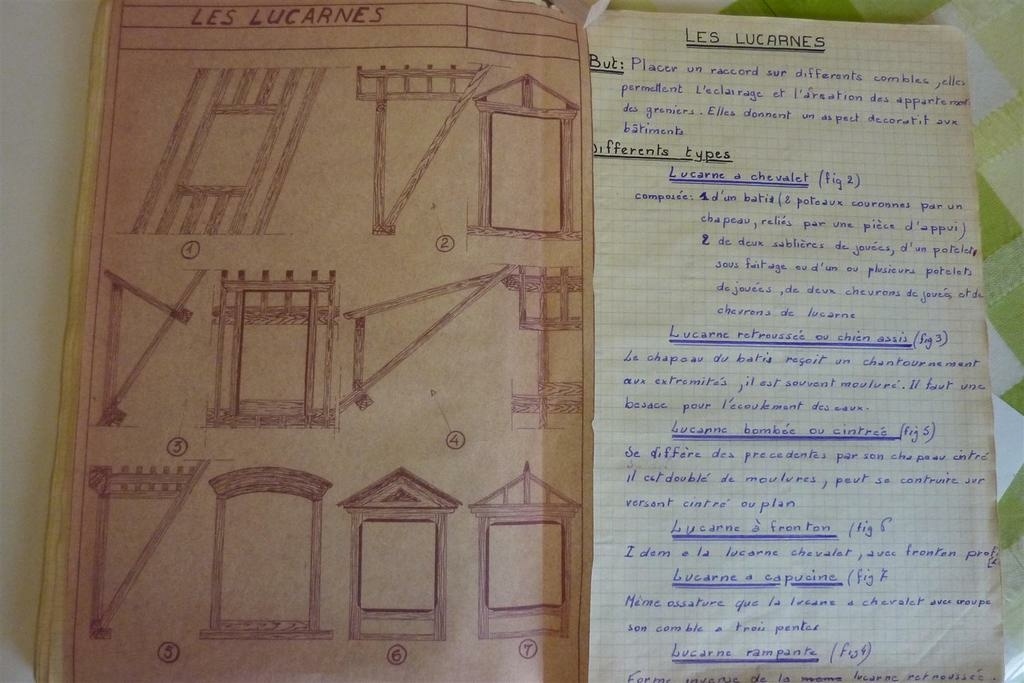 LES LUCARNES
1
2
3
4
5
6
7
LES LUCARNES
But: Placer un raccord sur differents combles, elles
permettent l'eclairage et l'áreation des appartements
des greniers. Elles donnent un aspect decoratif aux
bâtiments
Differents types
Lucarne a chevalet (fig 2)
composée: 1 d'un batis (2 poteaux couronnes par un
chapeau, reliés par une pièce d'appui)
2 de deux sablières de jouées, d'un potelet
sous faitage ou d'un ou plusieurs potelets
de jouées, de deux chevrons de jouée, et de
chevrons de lucarne
Lucarne retroussée ou chien assis (fig 3)
Le chapeau du batis reçoit un chantournement
aux extremités, il est souvent mouluré. Il faut une
besace pour l'écoulement des eaux.
Lucarne bombée ou cintreé (fig 5)
Se diffère des precedentes par son chapeau cintré
il est doublé de moulures, peut se construire sur
versant cintré ou plan
Lucarne à fronton (fig 6
Idem a la lucarne chevalet, avec fronton
Lucarne a capucine (fig 7
Même ossature que la lucane a chevalet avec croupe
son comble a trois pentes
Lucarne rampante (fig 4)
Forme inverse de la lucarne retroussée.